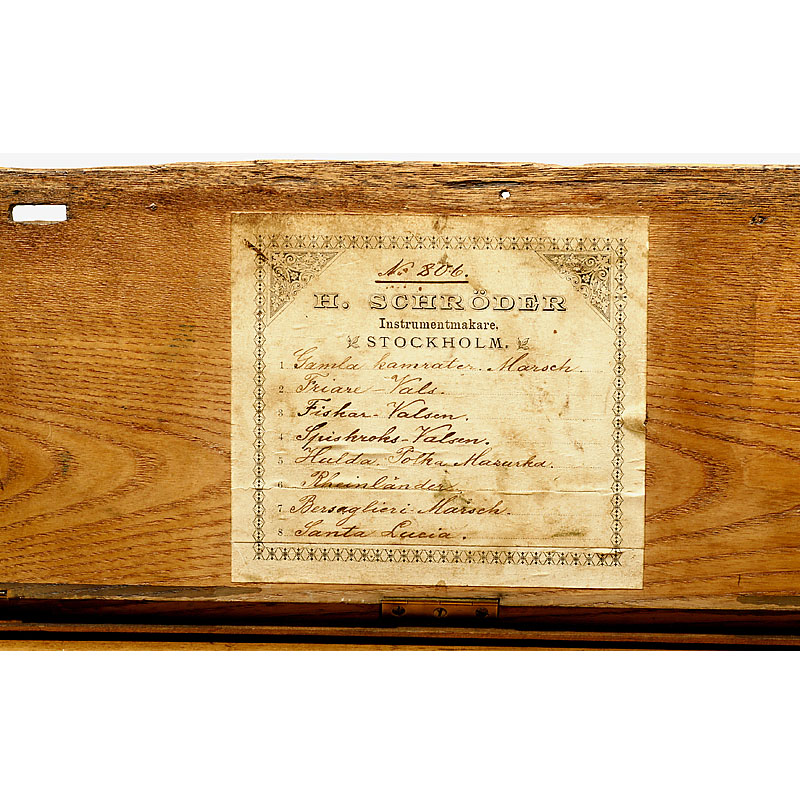 No 806.
H. SCHRÖDER
Instrumentmakare.
STOCKHOLM.
1 Gamla kamrater. Marsch.
2 Friare-Vals.
3 Fiskar-Valsen.
4 Spiskroks-Valsen.
5 Hulda. Polka Mazurka.
6 Rheinländer.
7 Bersaglieri-Marsch.
8 Santa Lucia.